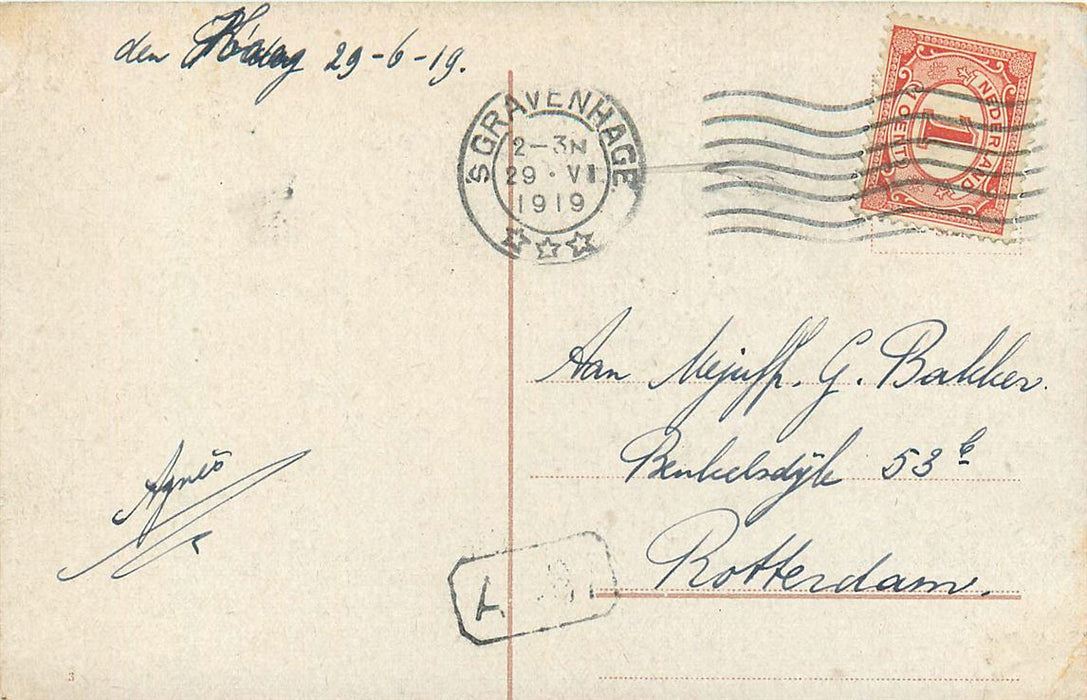 den Haag 29-6-19.
'S GRAVENHAGE
2-3N
29·VI
1919
NEDERLAND
1
CENT
Aan Mejuffr. G. Bakker.
Beukelsdijk 53 b
Rotterdam.
Agnès
3